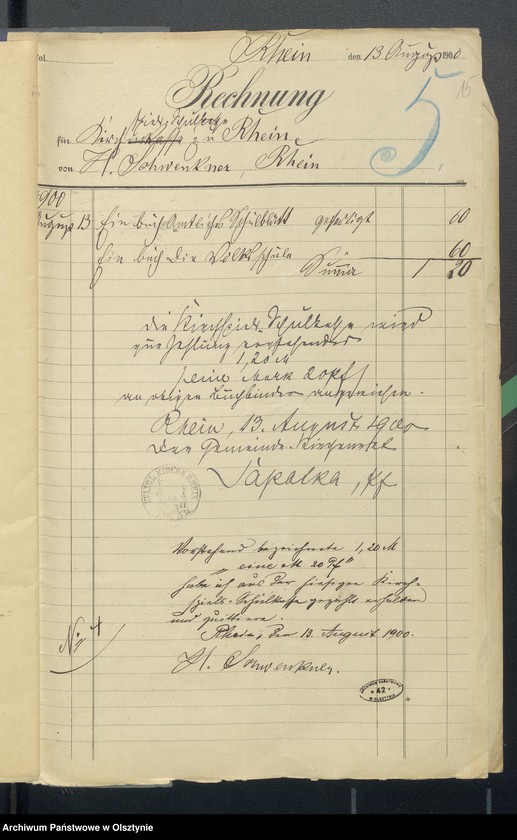 Fol.
Rhein den 13 August 1900.
15
Rechnung
5.
für Kirchspiels Schulkasse zu Rhein
von H. Schwenkner, Rhein
1900
August 13 Ein buch Amtliches Schulblatt gefertigt 60
Ein buch Die Volksschule " 60
Summa 1 20
Die Kirchspiels-Schulkasse wird
zur Zahlung vorstehender
1,20 M
(eine Mark 20 Pf)
an obigen Buchbinder angewiesen.
Rhein, 13. August 1900
Der Gemeinde-Kirchenrat
Sapatka, Pf
Vorstehend bezeichnete 1,20 M
" eine M 20 Pf "
habe ich aus der hiesigen Kirch-
spiels-Schulkasse gezahlt erhalten
und quittiere.
Rhein, den 13. August 1900.
No 4
H. Schwenkner.
ARCHIWUM PAŃSTWOWE
* A2 *
W OLSZTYNIE
Archiwum Państwowe w Olsztynie